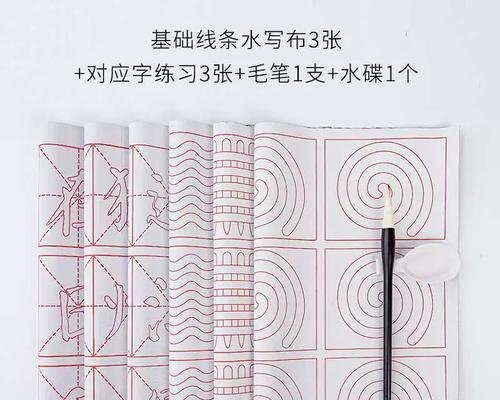 基础线条水写布3张
+对应字练习3张+毛笔1支+水碟1个